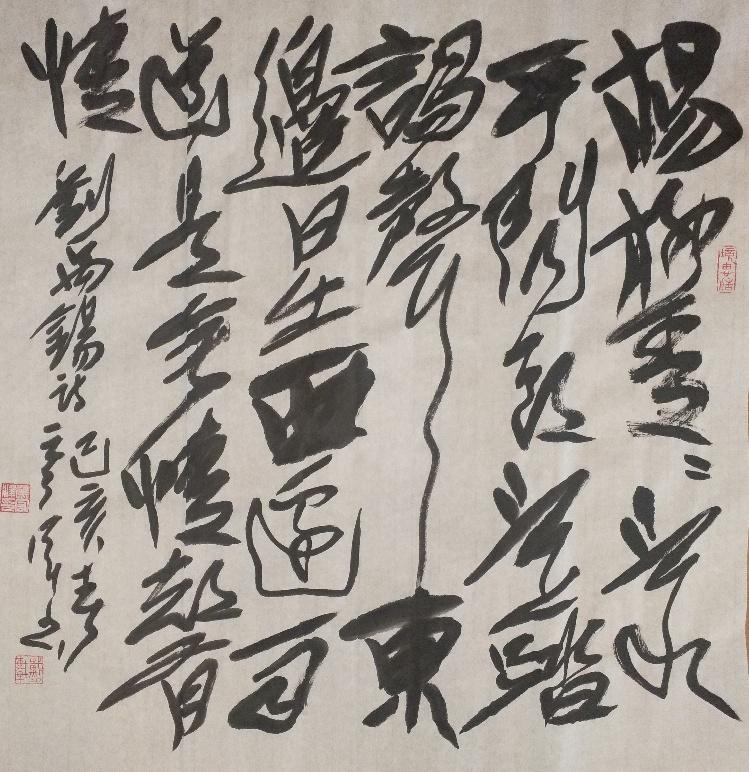 楊柳青〻江水
平聞郎江上踏
謌聲東
邊日出西邊雨
道是無情卻有
情 劉禹錫詩
己亥春